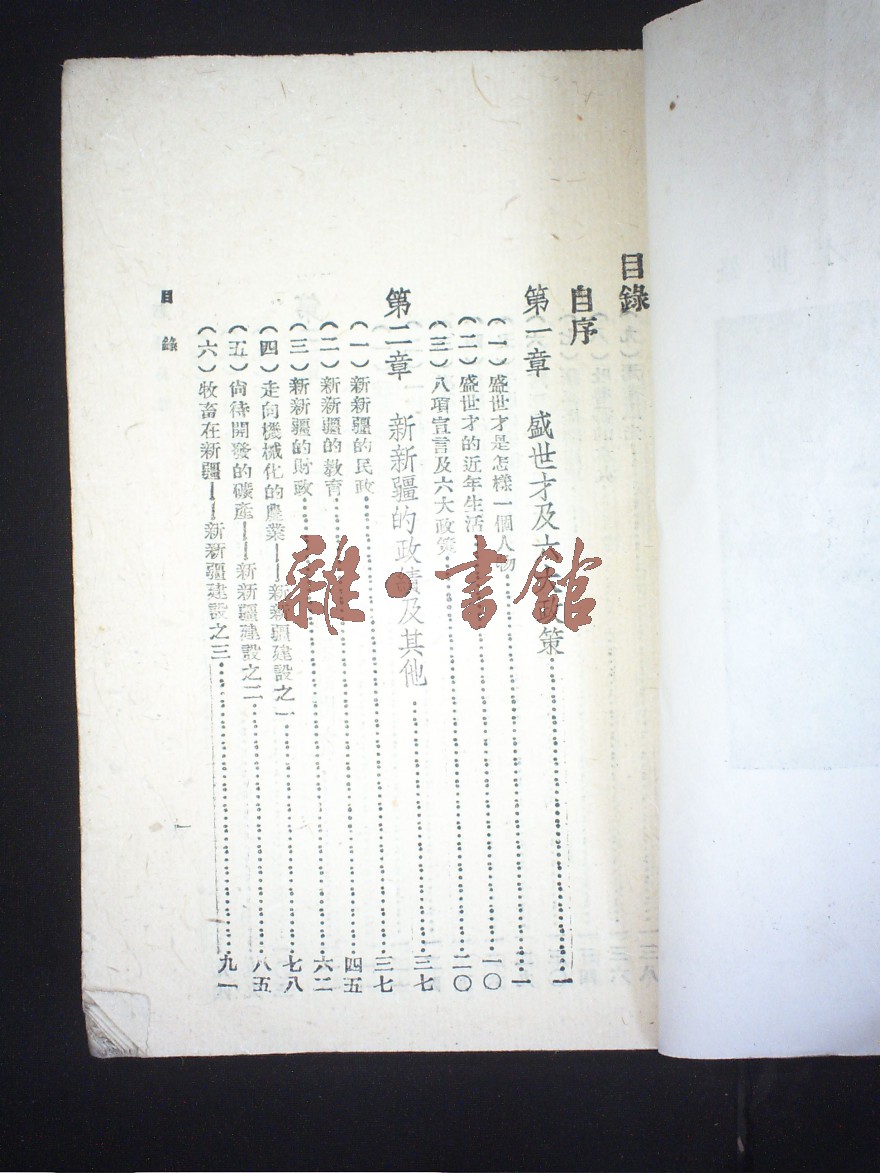 目錄
自序
第一章 盛世才及六大政策……一
（一）盛世才是怎樣一個人物……一
（二）盛世才的近年生活……一〇
（三）八項宣言及六大政策……二〇
第二章 新新疆的政績及其他……三七
（一）新新疆的民政……三七
（二）新新疆的教育……四五
（三）新新疆的財政……六二
（四）走向機械化的農業——新新疆建設之一……七八
（五）尙待開發的礦產——新新疆建設之二……八五
（六）牧畜在新疆——新新疆建設之三……九一
目錄
一
雜·書館